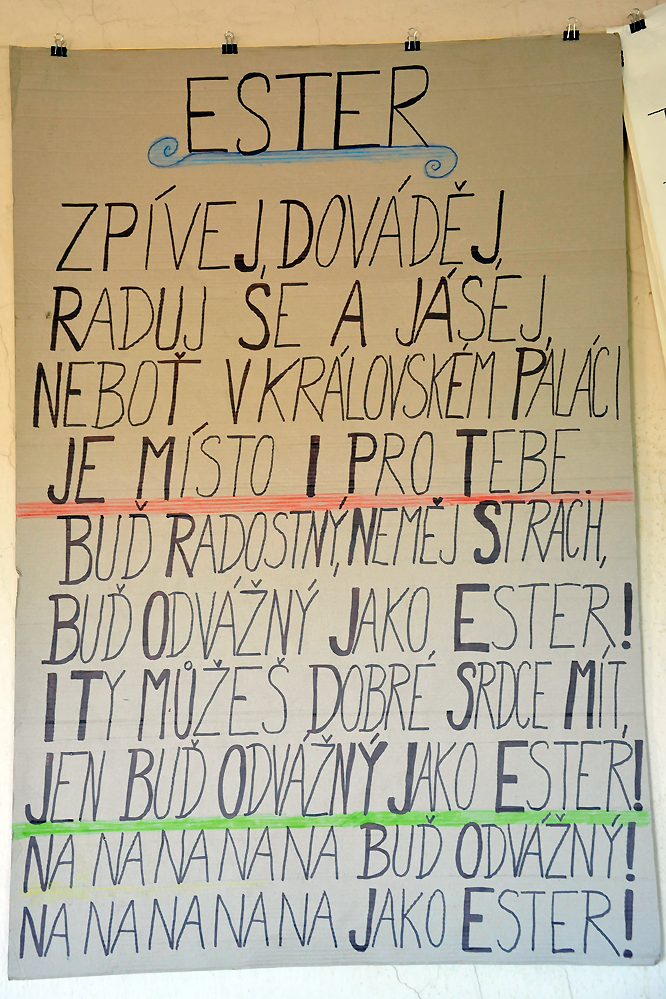 ESTER
ZPÍVEJ, DOVÁDĚJ,
RADUJ SE A JÁSEJ,
NEBOŤ V KRÁLOVSKÉM PALÁCI
JE MÍSTO I PRO TEBE.
BUĎ RADOSTNÝ, NEMĚJ STRACH,
BUĎ ODVÁŽNÝ JAKO ESTER!
I TY MŮŽEŠ DOBRÉ SRDCE MÍT,
JEN BUĎ ODVÁŽNÝ JAKO ESTER!
NA NA NA NA NA BUĎ ODVÁŽNÝ!
NA NA NA NA NA JAKO ESTER!